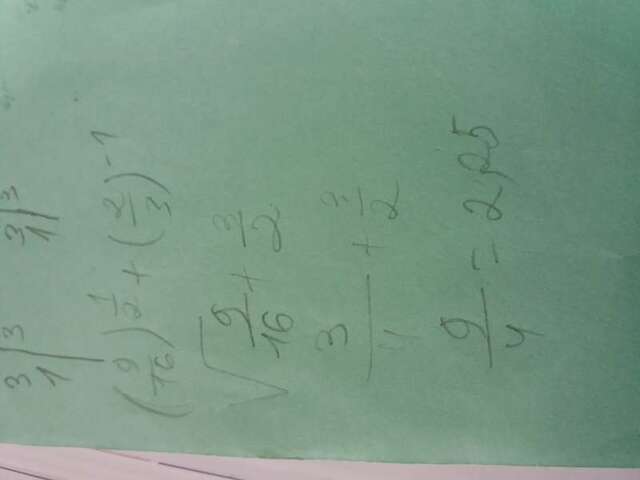 3 | 3 3 | 3
1 | 1 |
(9/16)^1/2 + (2/3)^-1
√9/16 + 3/2
3/4 + 3/2
9/4 = 2,25